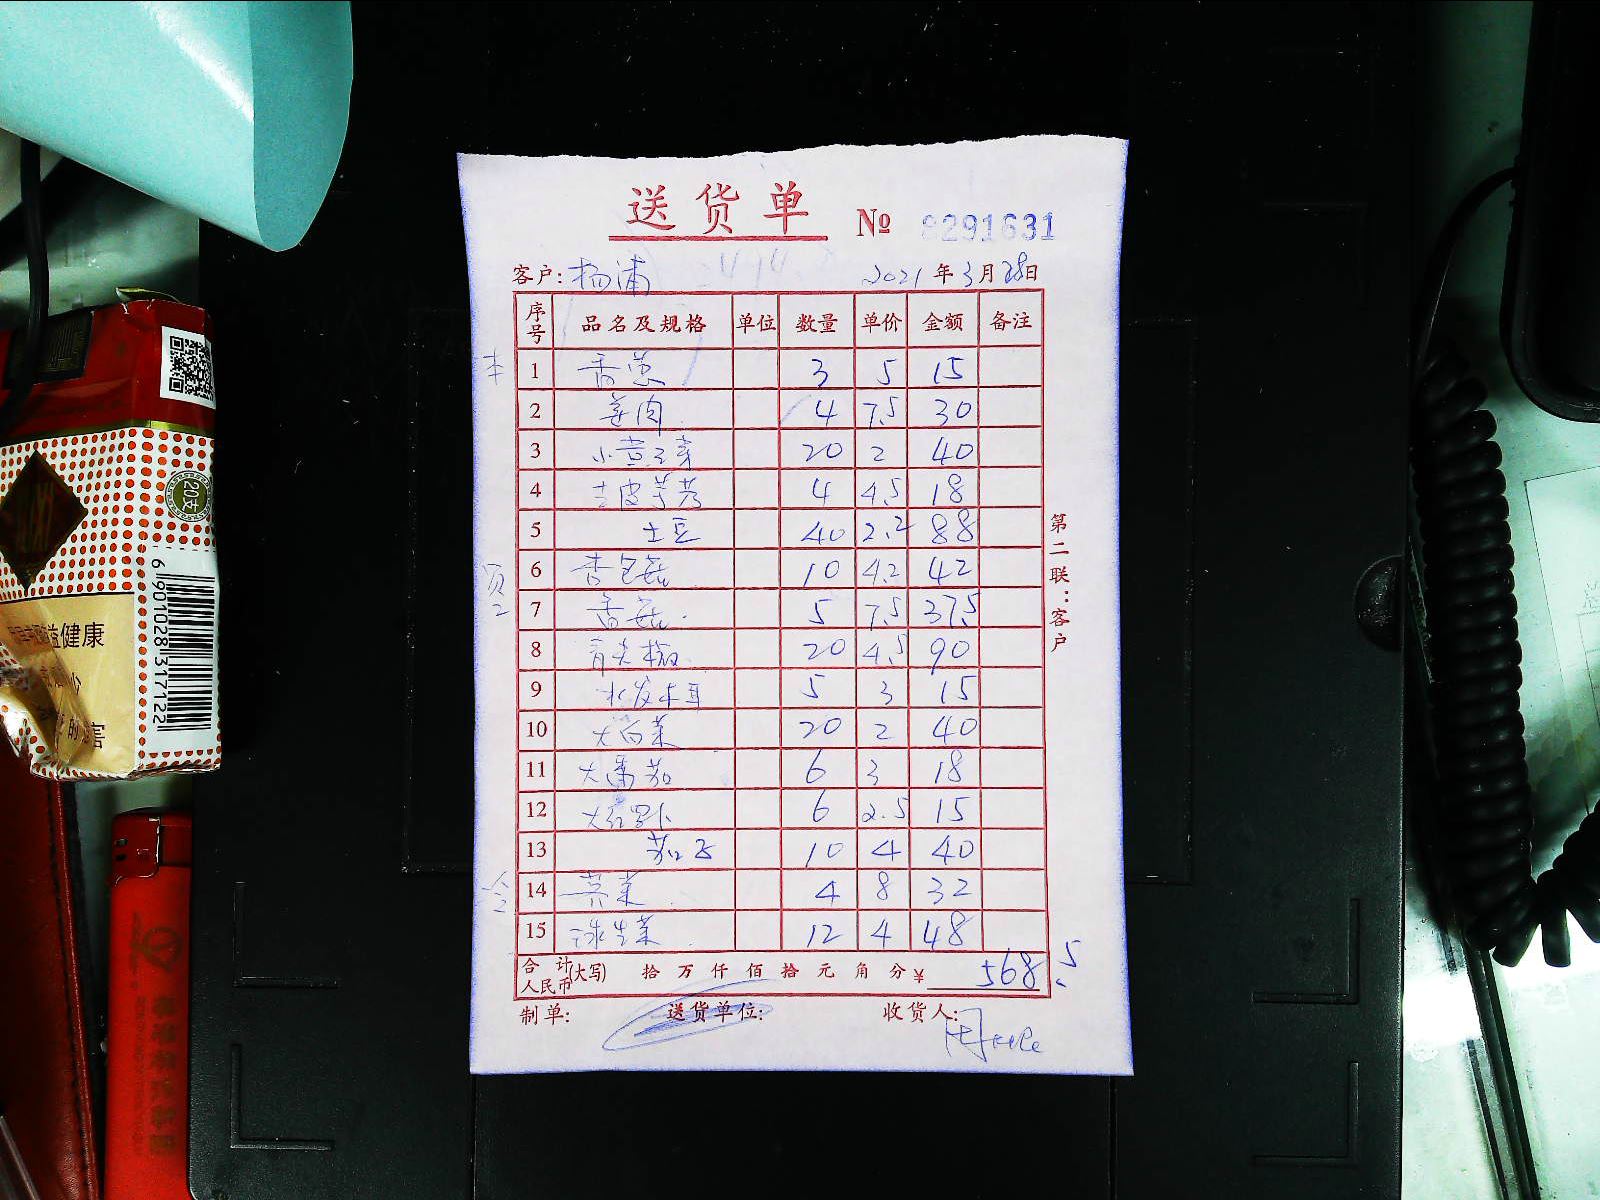 送货单 № 8291631
客户: 杨浦 2021年3月28日
序号 品名及规格 单位 数量 单价 金额 备注
1 香葱 3 5 15
2 姜肉 4 7.5 30
3 小黄豆芽 20 2 40
4 去皮芋艿 4 4.5 18
5 土豆 40 2.2 88
6 杏包菇 10 4.2 42
7 香菇 5 7.5 37.5
8 青尖椒 20 4.5 90
9 水发木耳 5 3 15
10 大白菜 20 2 40
11 大番茄 6 3 18
12 大红萝卜 6 2.5 15
13 茄子 10 4 40
14 芹菜 4 8 32
15 球生菜 12 4 48
合计人民币(大写) 拾 万 仟 佰 拾 元 角 分 ¥ 568.5
制单: 送货单位: 收货人:
第二联:客户
本
页
合
20支
健康
害
6 901028 317122